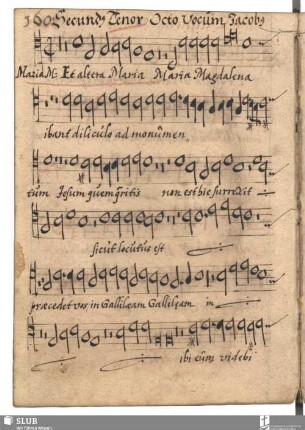 160 Secundus Tenor Octo Vocum Jacobs
Maria M: Et altera Maria Maria Magdalena
ibant diliculo ad monumen
tum Jesum quem qritis non est hic surrexit
sicut locutus est
præcedet vos in Gallilęam Gallilęam in
ibi eum videbi
SLUB
Wir führen Wissen.